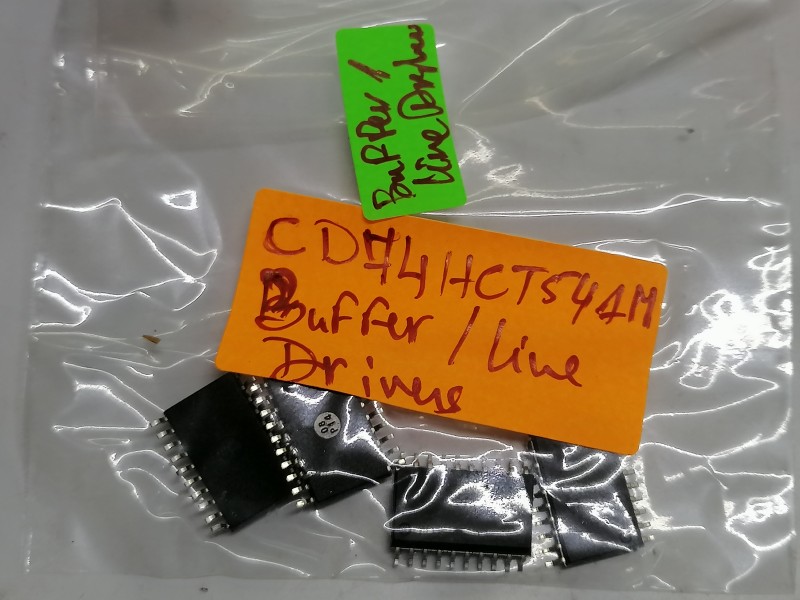 Buffer /
Line Driver
CD74HCT541M
Buffer / Line
Drivers